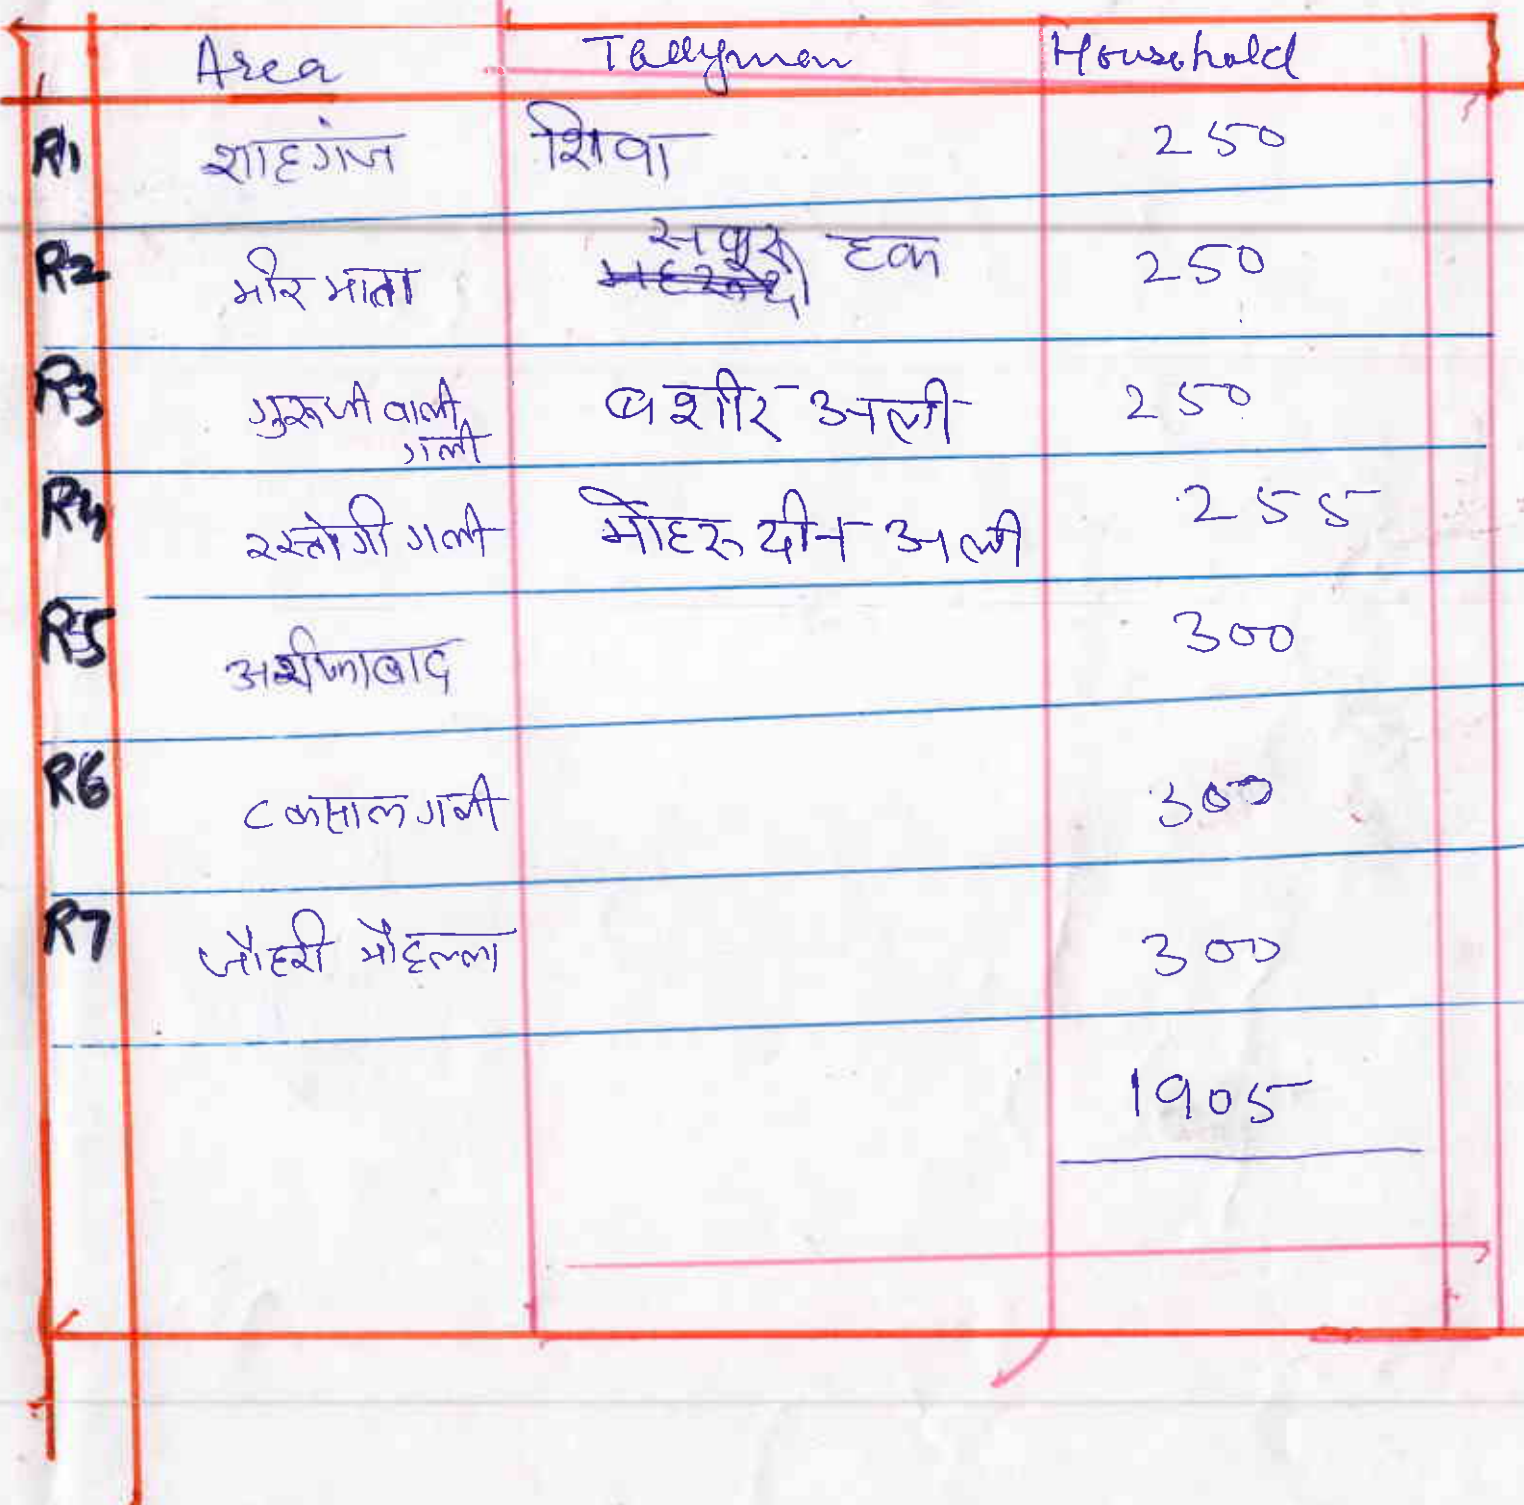 Area Tallyman Household
R1 शाहगंज शिवा 250
R2 मीर माता सकुरू हक 250
R3 गुरूजी वाली गली बशीर अली 250
R4 रस्तोगी गली मोहरुदीन अली 255
R5 300
R6 टकसाल गली 300
R7 जौहरी मौहल्ला 300
1905